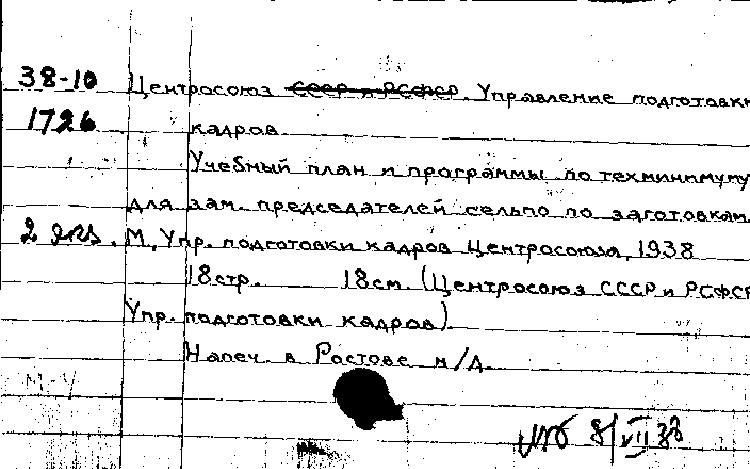 38-10 Центросоюз СССР и РСФСР. Управление подготовки
1726 кадров.
Учебный план и программы по техминимуму
для зам. председателей сельпо по заготовкам.
2 экз. М, Упр. подготовки кадров Центросоюза, 1938
18стр. 18см. (Центросоюз СССР и РСФСР
Упр. подготовки кадров).
Напеч. в Ростове н/Д.
М-У
8/VII 38